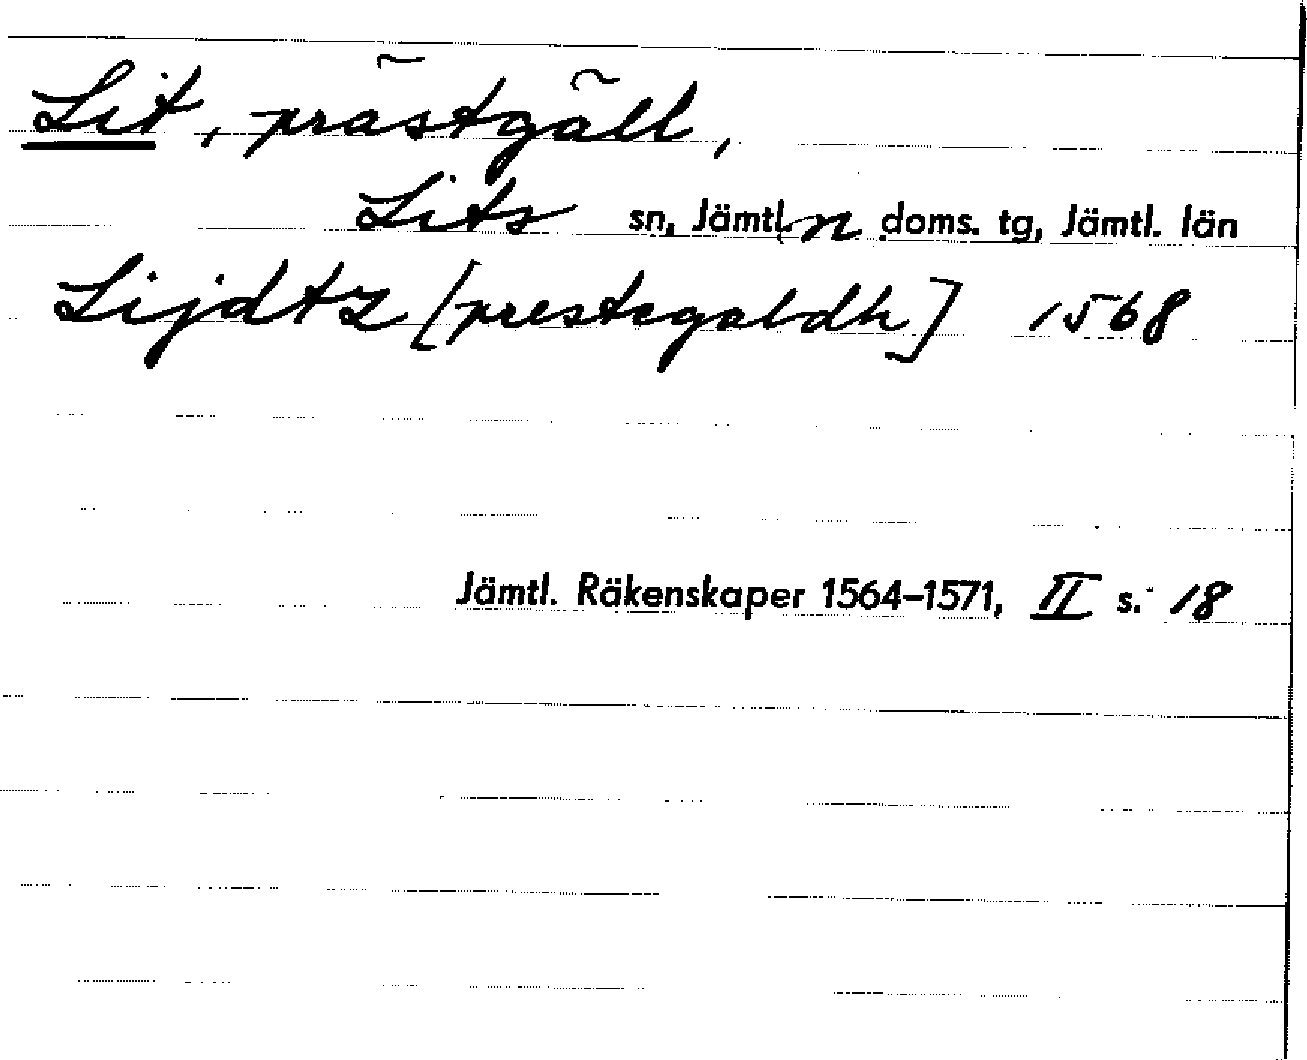 Lit, prästgäll,
Lits sn, Jämtl n doms. tg, Jämtl. län
Lijdtz [prestegaldh] 1568
Jämtl. Räkenskaper 1564–1571, II s. 18